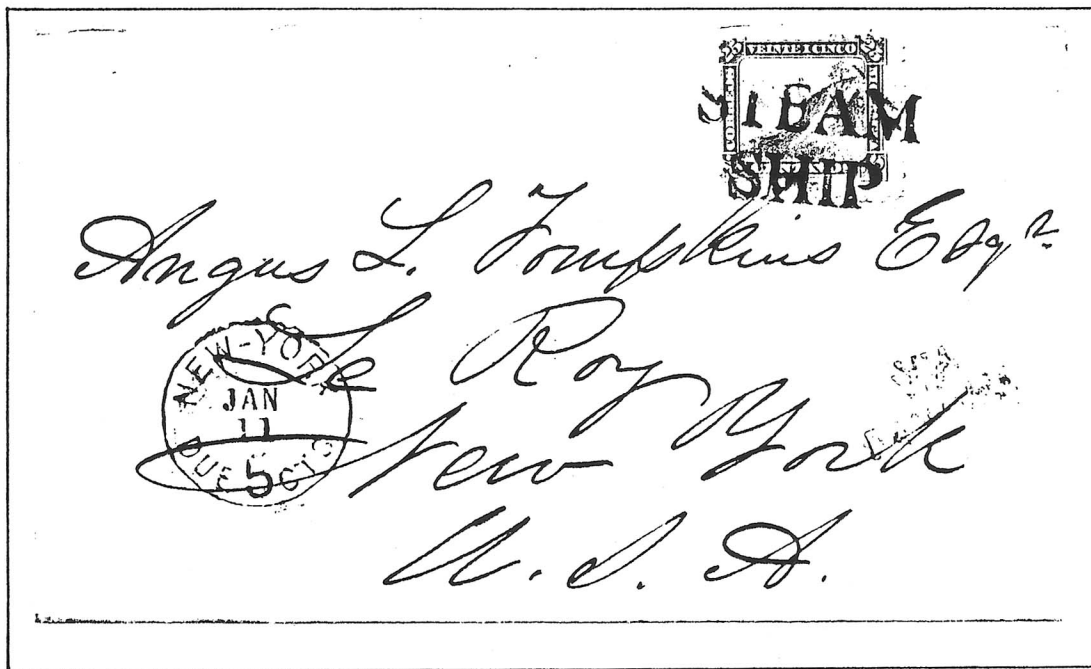 VEINTE I CINCO
STEAM
SHIP
Angus L. Tompkins Esqr.
Le Roy
New York
U. S. A.
NEW-YORK
JAN
11
DUE 5 CTS